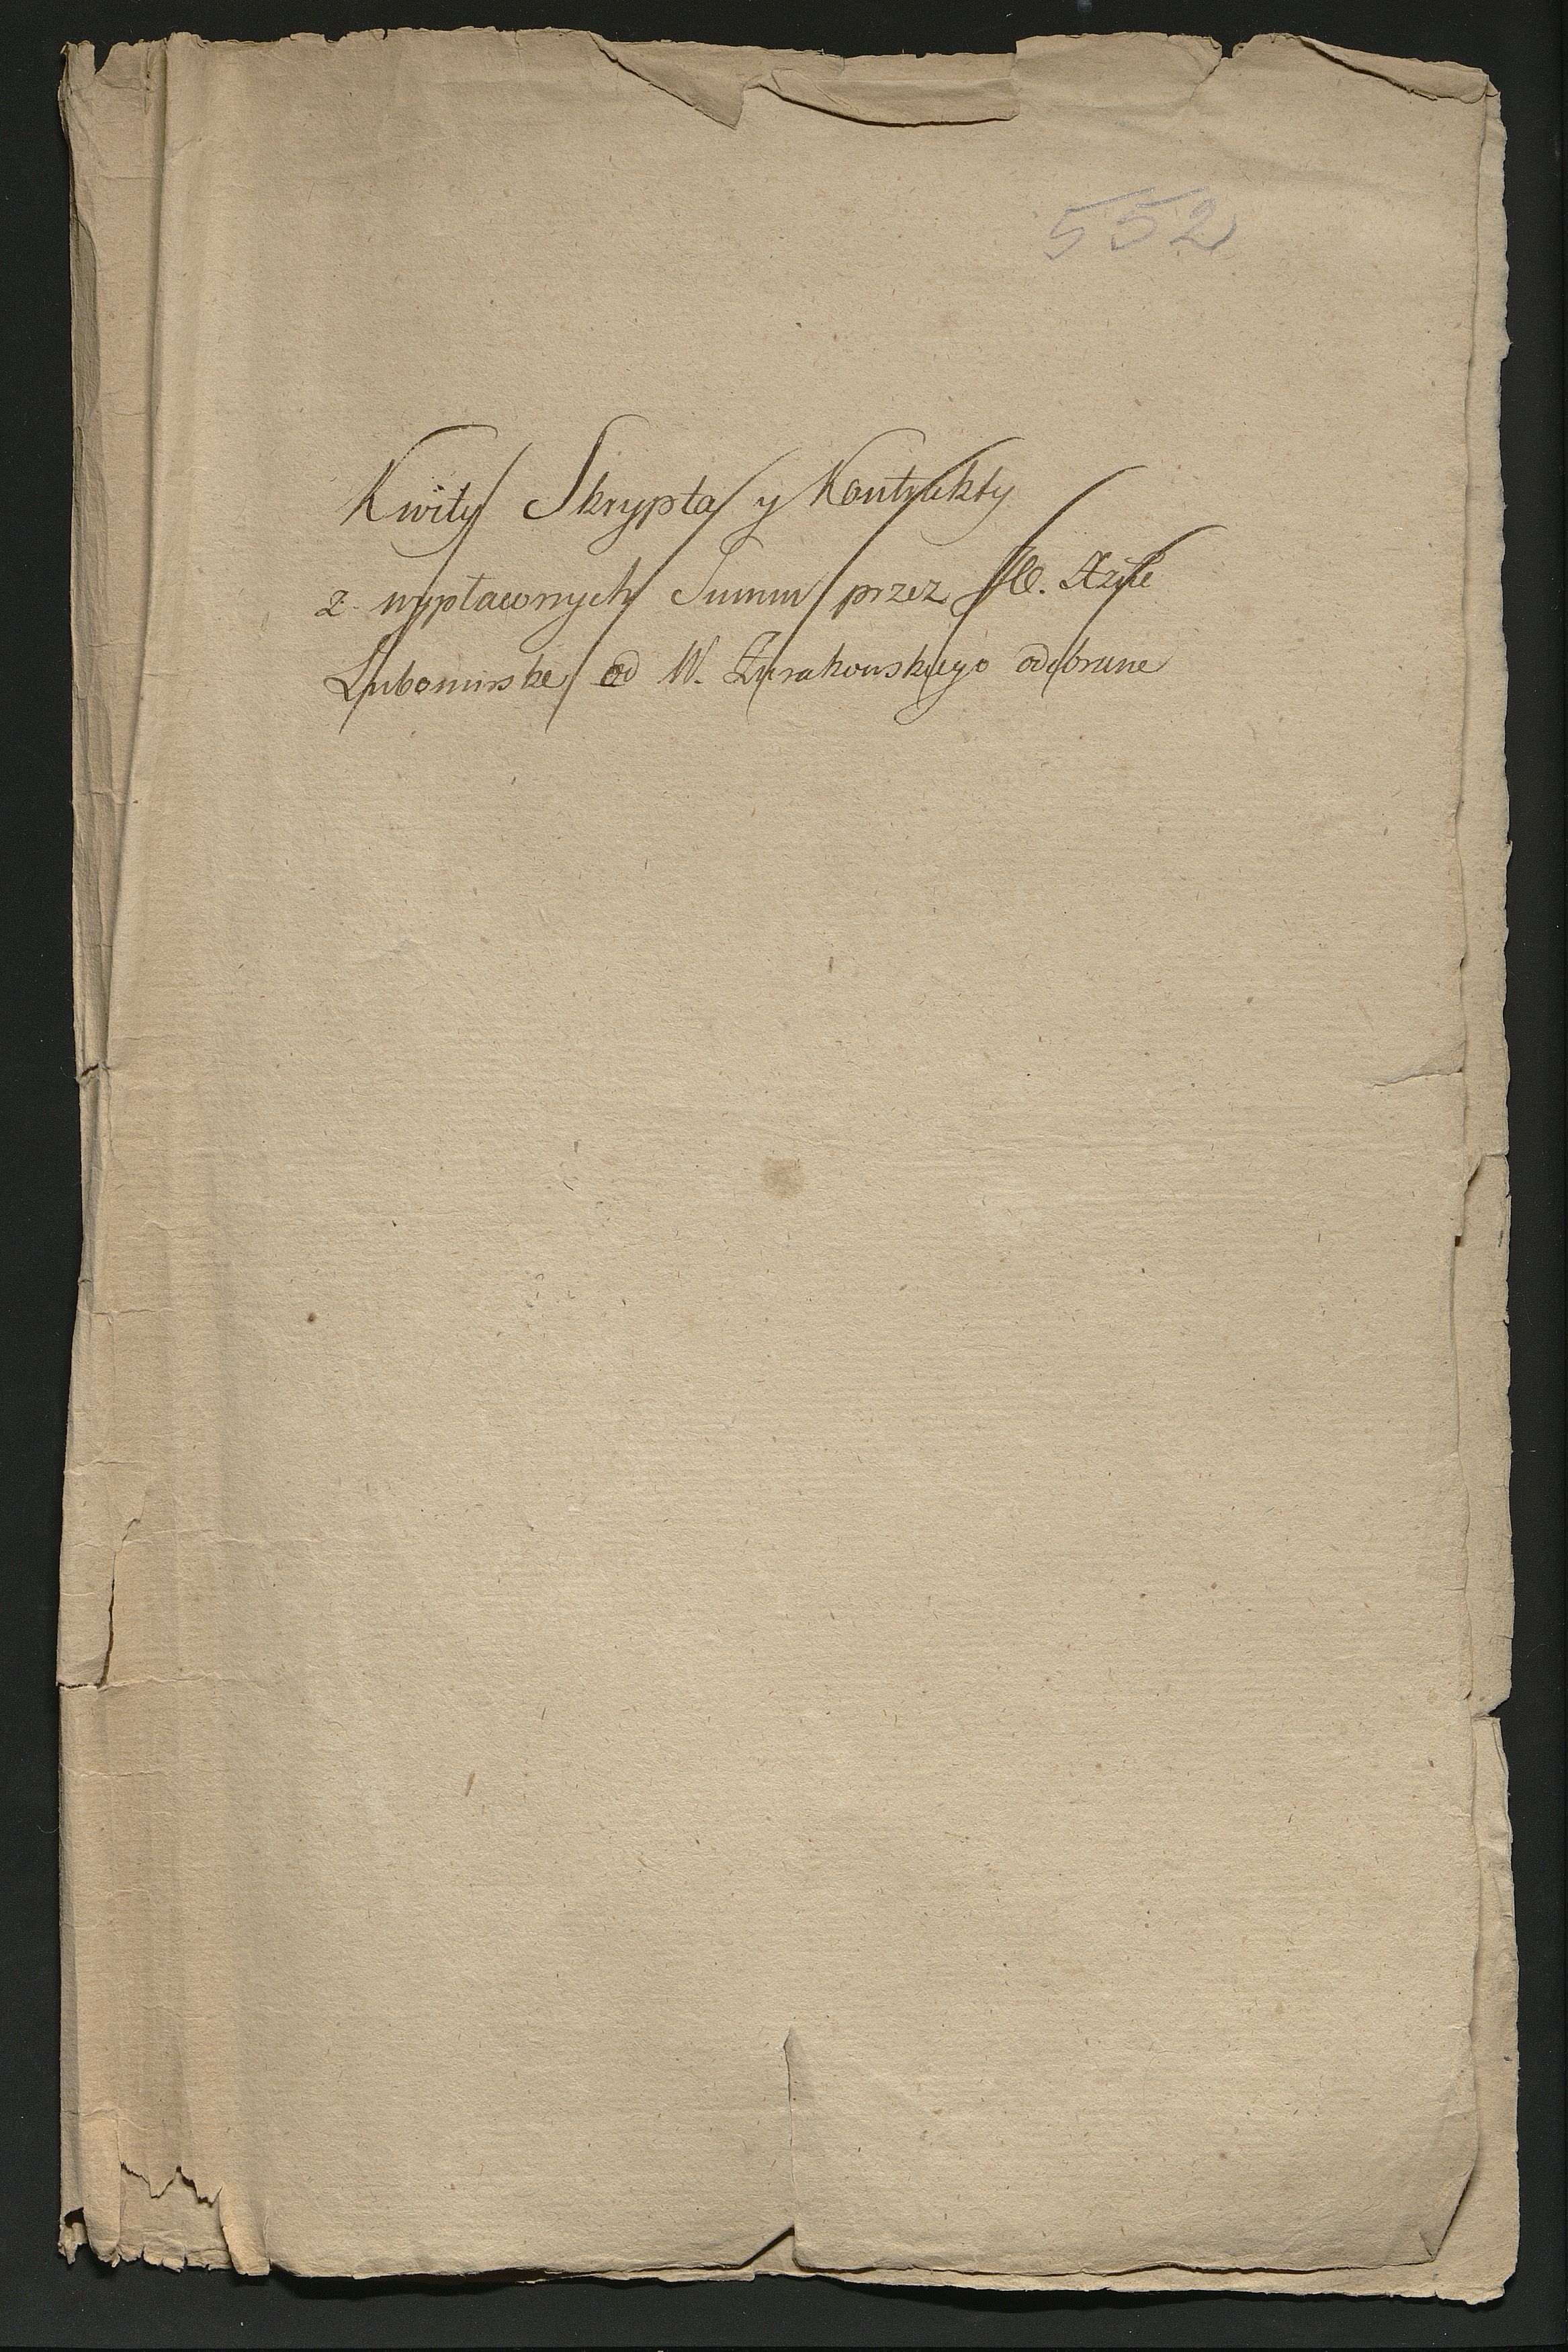 552
Kwity Skrypta y Kontrakty
z wypłaconych Summ przez JO. Xzne
Lubomirske od W. Zurakowskiego odebrane